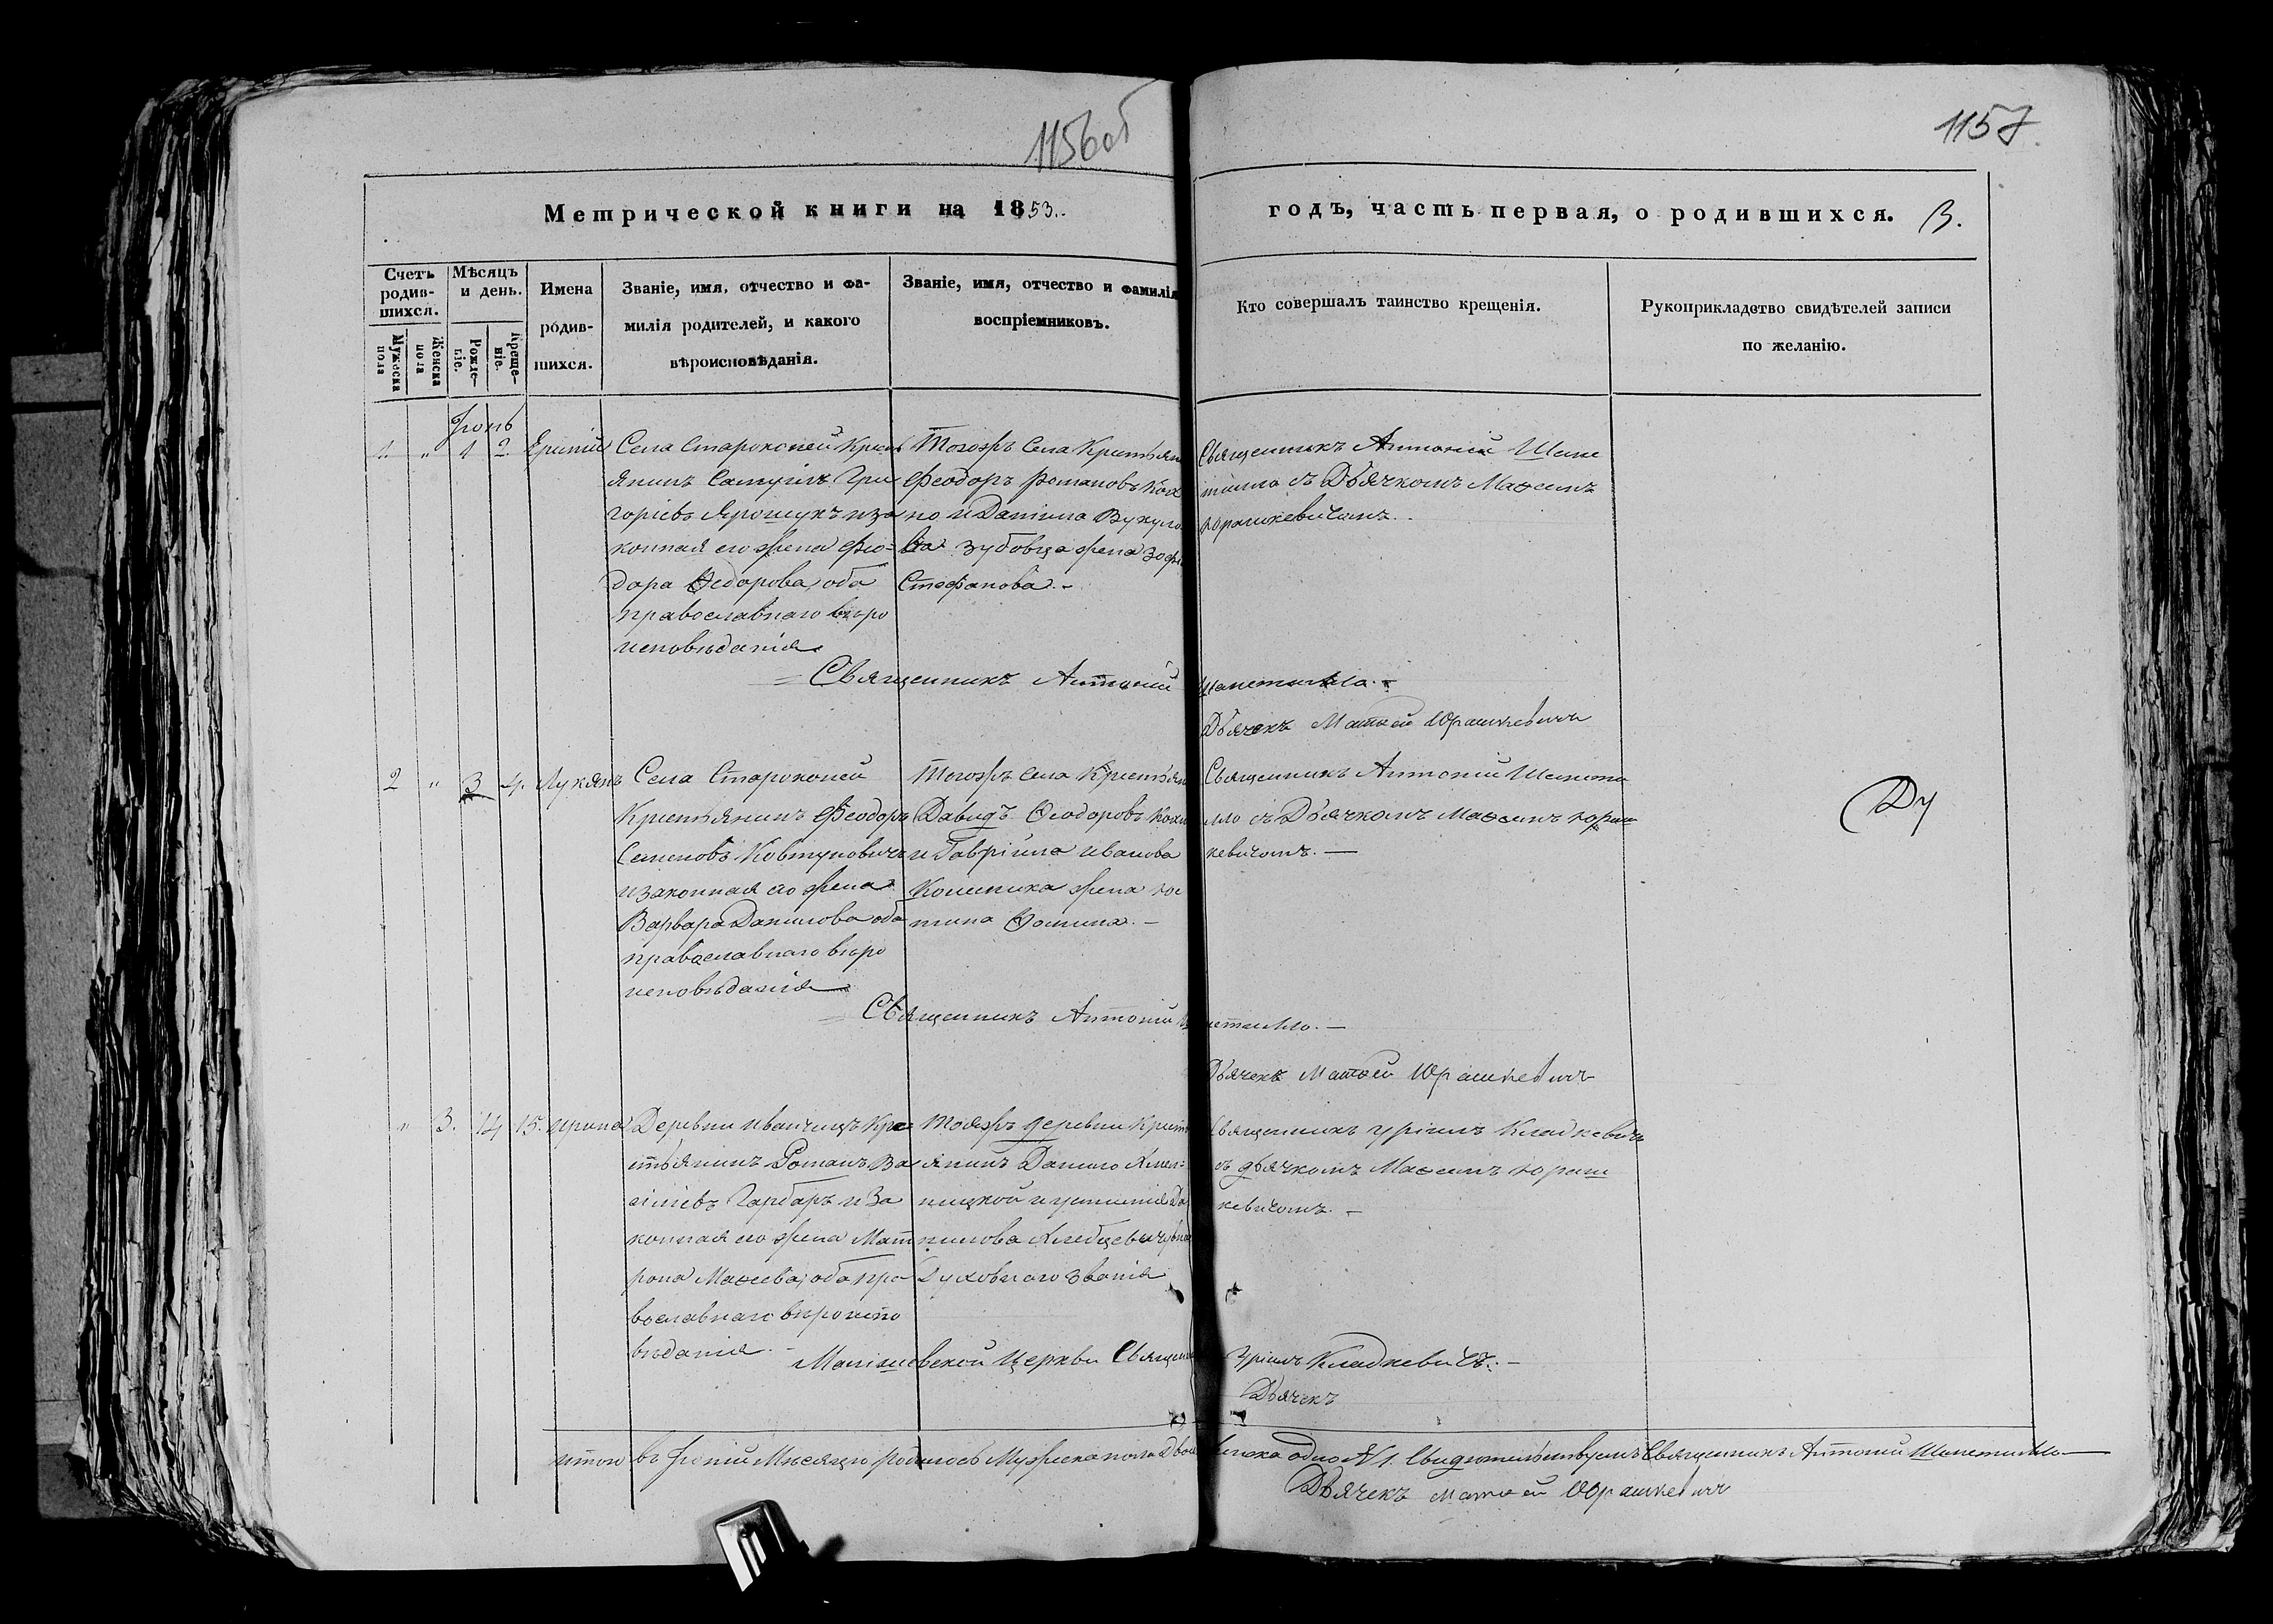 1156об
1157
Метрической книги на 1853.
годъ, часть первая, о родившихся. 3.
Счетъ родившихся.
Мужеска пола
Женска пола
Мѣсяцъ и день.
Рожденіе.
Крещеніе.
Имена родившихся.
Званіе, имя, отчество и фамилія родителей, и какого вѣроисповѣданія.
Званіе, имя, отчество и фамилія воспріемниковъ.
Кто совершалъ таинство крещенія.
Рукоприкладство свидѣтелей записи по желанію.
Іюнь
1. " 1 2
Села Староконей Крис
янинъ Самуилъ Гри
горіевъ Ярошукъ и за
конная его жена Фео=
дора Ѳедорова, оба
православнаго вѣро
исповѣданія
Тогожъ Села Кристъян
Феодоръ Романовъ
но и Данiила
ва Зубовца жена Зофі
Стефанова.-
Священникъ Антоній Шепе
тилло съ Дьячкомъ Маѳеемъ
Юрашкевичомъ.-
= Священникъ Антоній Шепетилло.-
Дьячекъ Матѳей Юрашкевичъ
2 " 3 4. Лукянъ
Села Староконей
Кристъянинъ Феодоръ
Семеновъ Ковтуновичъ
и законная его жена
Варвара Данилова оба
православнаго вѣро
исповѣданія
Тогожъ Села Кристъян
Давидъ Ѳеодоровъ
и Гавріила Иванова
жена Юс
тина Ѳомина.-
Священникъ Антоній Шепети
лло съ Дьячкомъ Маѳеемъ Юраш
кевичомъ.-
Ду
= Священникъ Антоній Шепетилло.-
Дьячекъ Матѳей Юрашкевичъ
" 3. 14 15. Ирина
Деревни Иванчицъ Кри=
стьянинъ Романъ Ва
силіевъ Гарбаръ и за
конная его жена Мат
рона Маѳеева, оба пра
вославнаго вѣроиспо
вѣданія.-
Тояжъ деревни Крист
янинъ Данило Хмел=
ницкой и Іустинія Да
нилова
Духовнаго званія
Священникъ Уріилъ Кладкевичъ
съ дьячкомъ Маѳеемъ Юраш
кевичомъ.-
Церкви Священ Уріилъ Кладкевичъ.-
Дьячекъ
Итого въ Іюнѣ Мѣсяцѣ родилось Мужеска пола Двое Женска одно № 1. Свидѣтельствуемъ Священникъ Антоній Шепетилло
Дьячекъ Матѳей Юрашкевичъ